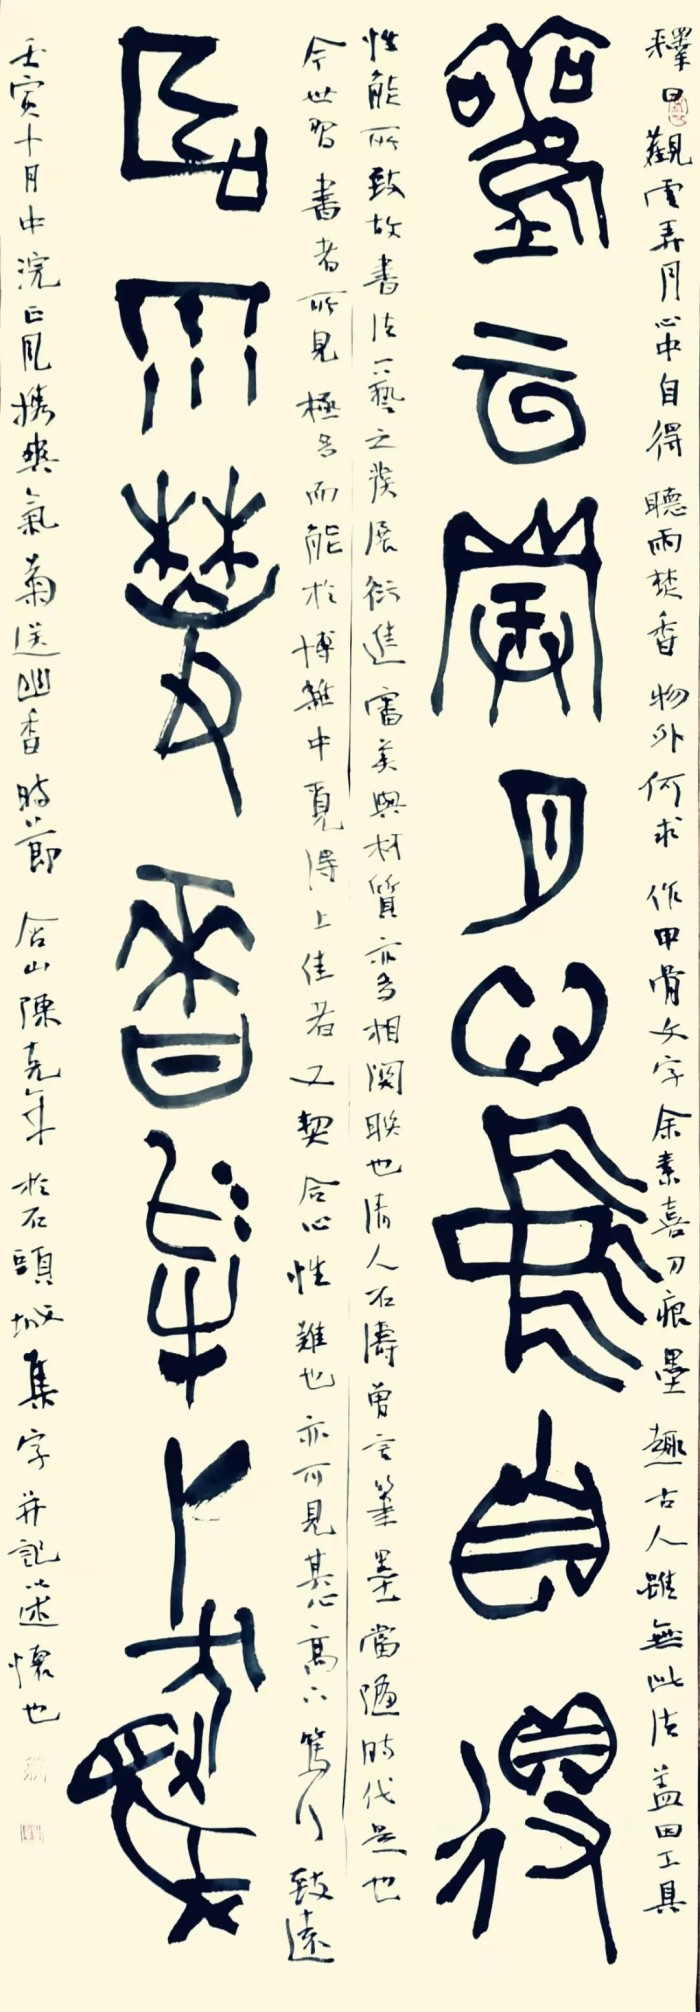 釋曰觀雲弄月心中自得聽雨焚香物外何求作甲骨文字余素喜刀痕墨趣古人雖無此法蓋因工具
觀云弄月心中自得
性能所致故書法一藝之發展衍進審美與材質亦多相關聯也清人石濤曾言筆墨當隨時代是也
今世習書者所見極多而能於博雜中覓得上佳者又契合心性難也亦可見其心高不篤行致遠
聽雨焚香物外何求
壬寅十月中浣正風攜爽氣菊送幽香時節含山陳克年於石頭城集字并記以述懷也